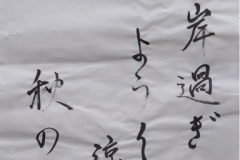 岸過ぎ
ようく
涼
秋の